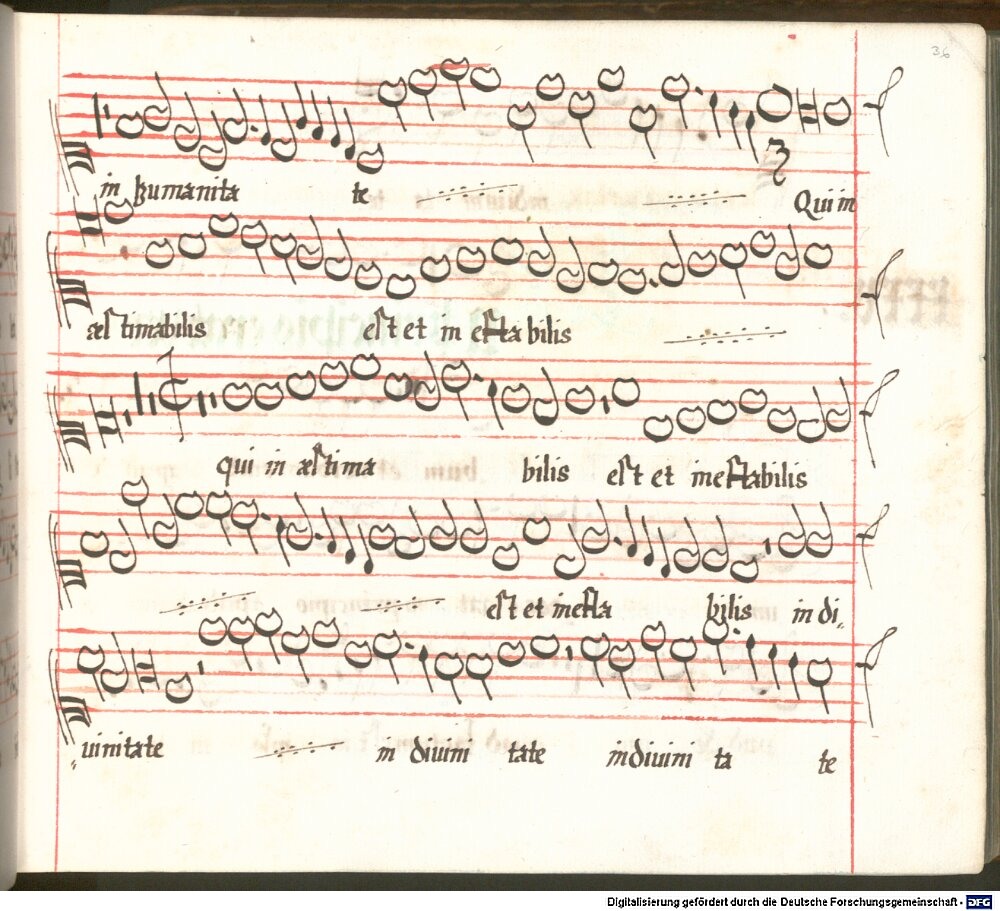 36
in humanita te Qui in
æstimabilis est et in esta bilis
qui in æstima bilis est et inestabilis
est et inesta bilis in di
uinitate in diuini tate in diuini ta te
Digitalisierung gefördert durch die Deutsche Forschungsgemeinschaft - DFG